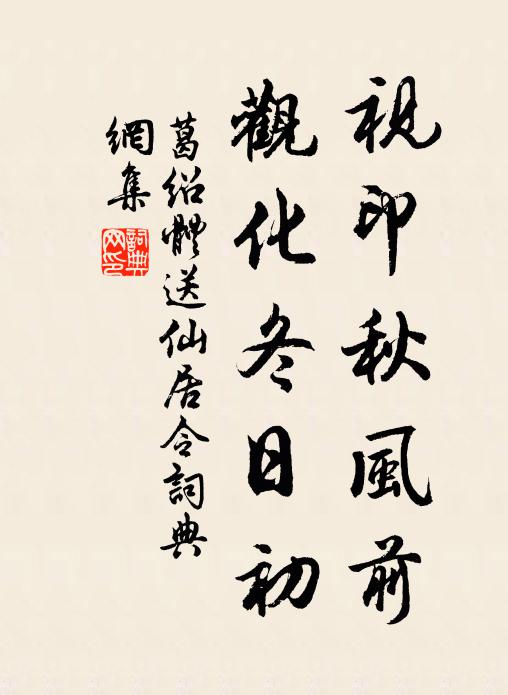 視印秋風前
觀化冬日初
葛紹體送仙居令詞典
網集
詞典網印